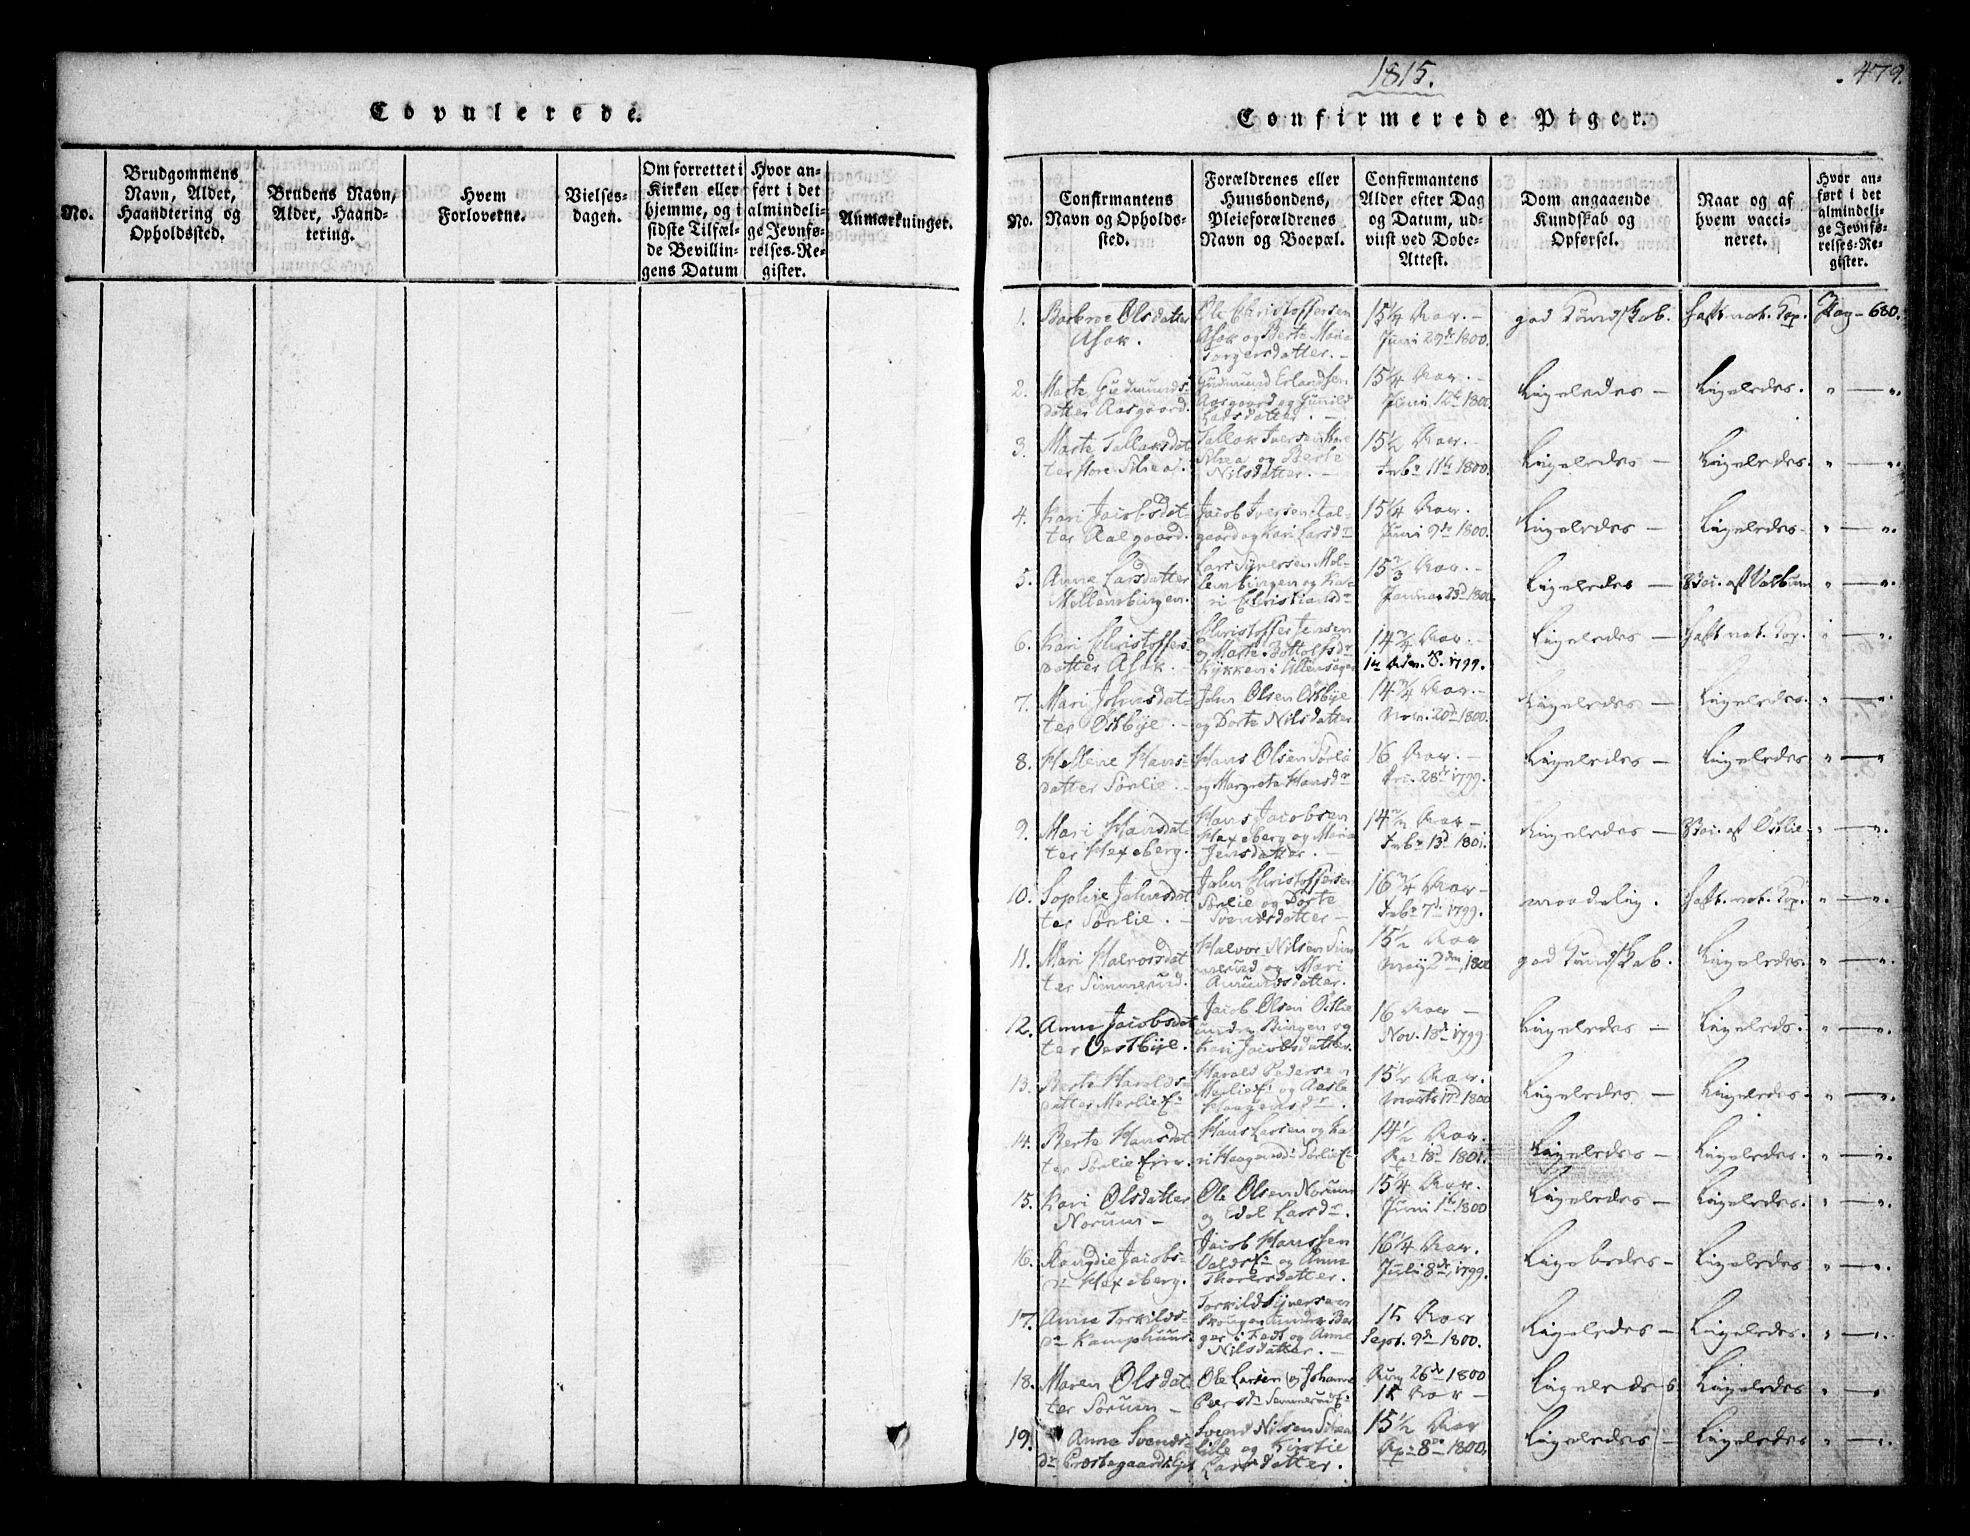 Copulerede.
No.
Brudgommens
Navn, Alder,
Haandtering og
Opholdssted.
Brudens Navn,
Alder, Haand-
tering.
Hvem
Forloverne.
Vielses-
dagen.
Om forrettet i
Kirken eller
hjemme, og i
sidste Tilfæl-
de Bevillin-
gens Datum
Hvor an-
ført i det
almindeli-
ge Jevnfø-
relses-Re-
gister.
Anmærkninger.
1815.
479.
Confirmerede Piger.
No.
Confirmantens
Navn og Opholds-
sted.
Forældrenes eller
Huusbondens,
Pleieforældrenes
Navn og Boepæl.
Confirmantens
Alder efter Dag
og Datum, ud-
viist ved Døbe-
Attest.
Dom angaaende
Kundskab og
Opførsel.
Naar og af
hvem vacci-
neret.
Hvor an-
ført i det
almindeli-
ge Jevnfø-
relses-Re-
gister.
1.
Barbroe Olsdatter
Asak.
Ole Christoffersen
Asak og Berte Maria
Torgersdatter.
15 1/4 Aar. -
Juni 29de 1800.
god Kundskab.
haft nat. Kop.
Pag - 680.
2.
Marte Gudmunds-
datter Aasgaard.
Gudmund Erlandsen
Aasgaard og Gunild
Larsdatter. -
15 1/4 Aar. -
Juni 12te 1800.
Ligeledes -
Ligeledes.
" — ".
3.
Marte Tallaksdat-
ter store Silsea.
Tallak Iversen store
Silsea og Berte
Nilsdatter. -
15 1/2 Aar. -
Febr 11te 1800.
Ligeledes -
Ligeledes.
" — ".
4.
Kari Jacobsdat-
ter Aalgaard.
Jacob Iversen Aal-
gaard og Kari Larsdr
15 1/4 Aar.
Juni 9de 1800.
Ligeledes -
Ligeledes.
" — ".
5.
Anne Larsdatter
Mellembingen.
Lars Syversen Mel-
lembingen og Ka-
ri Christiansdr
15 2/3 Aar. -
Januar 23d 1800.
Ligeledes -
Vac. af Vølbum
" — ".
6.
Kari Christoffers-
datter Asak. -
Christoffer Jensen
og Marte Bottolfsdr
Kykken i Ullensager
14 3/4 Aar. -
8. 1799.
Ligeledes -
haft nat. Kop.
" — ".
7.
Mari Johnsdat-
ter Østbye. -
John Olsen Østbye
og Dorte Nilsdatter.
14 3/4 Aar. -
Nov. 20de 1800.
Ligeledes -
Ligeledes.
" — ".
8.
Hellene Hans-
datter Sørlie. -
Hans Olsen Sørlie
og Margrete Hansdr
16 Aar. -
28de 1799.
Ligeledes -
Ligeledes
" — ".
9.
Mari Hansdat-
ter Hexeberg.
Hans Jacobsen
Hexeberg og Maria
Jensdatter. -
14 1/2 Aar -
Febr 13d 1801.
Ligeledes -
Vac. af Østlie -
" — ".
10.
Sophie Johnsdat-
ter Sørlie. -
John Christoffersen
Sørlie og Dorte
Svendsdatter -
16 3/4 Aar -
Febr 7de 1799.
maadelig.
haft. nat. Kop.
" — ".
11.
Mari Halvorsdat-
ter Simmerud.
Halvor Nilsen Sim-
merud og Mari
Amundsdatter.
15 1/2 Aar
May 2den 1800
god Kundskab.
Ligeledes.
" — ".
12.
Anne Jacobsdat-
ter Oestbye.
Jacob Olsen Ostlie
under Bingen og
Kari Jacobsdatter.
16 Aar -
Nov. 18de 1799
Ligeledes -
Ligeleds.
" — ".
13.
Berte Harolds-
datter Merlie
Harald Pedersen
Merlie og Aase
Haagensdr.
15 1/2 Aar.
Marts 17d 1800
Ligeledes -
Ligeledes.
" — ".
14.
Berte Hansdat-
ter Sørlie
Hans Larsen og Ka-
ri Haagensdr Sørlie
14 1/2 Aar.
Apr 18d 1801.
Ligeledes -
Ligeledes.
" — ".
15.
Kari Olsdatter
Norum -
Ole Olsen Norum
og Edel Larsdr.
15 1/4 Aar.
Juni 1te 1800
Ligeledes -
Ligeledes.
" — ".
16.
Rangdie Jacobs-
dr Hexeberg.
Jacob Hanssen
og Anne
Thoresdatter.
16 1/4 Aar.
Juli 8de 1799.
Ligeledes -
Ligeledes
" — ".
17.
Anne Torkilds-
dr Kamphuus.
Torkild Syversen
Ber-
ger i Fedt og Anne
Nilsdatter. -
15 Aar
Sept. 9de 1800.
Ligeledes -
Ligeledes.
" — ".
18.
Maren Olsdat-
ter Sørum -
Ole Larsen og Johanne
Peersdr
Aug 26de 1800
15 Aar -
Ligeledes.
Ligeledes
" — "
19.
Anne Svends-
dr Præstegaards
Svend Nilsen
og Kirstie
Larsdatter.
15 1/2 Aar
Apr 8de 1800.
Ligeledes -
Ligeledes
" — ".